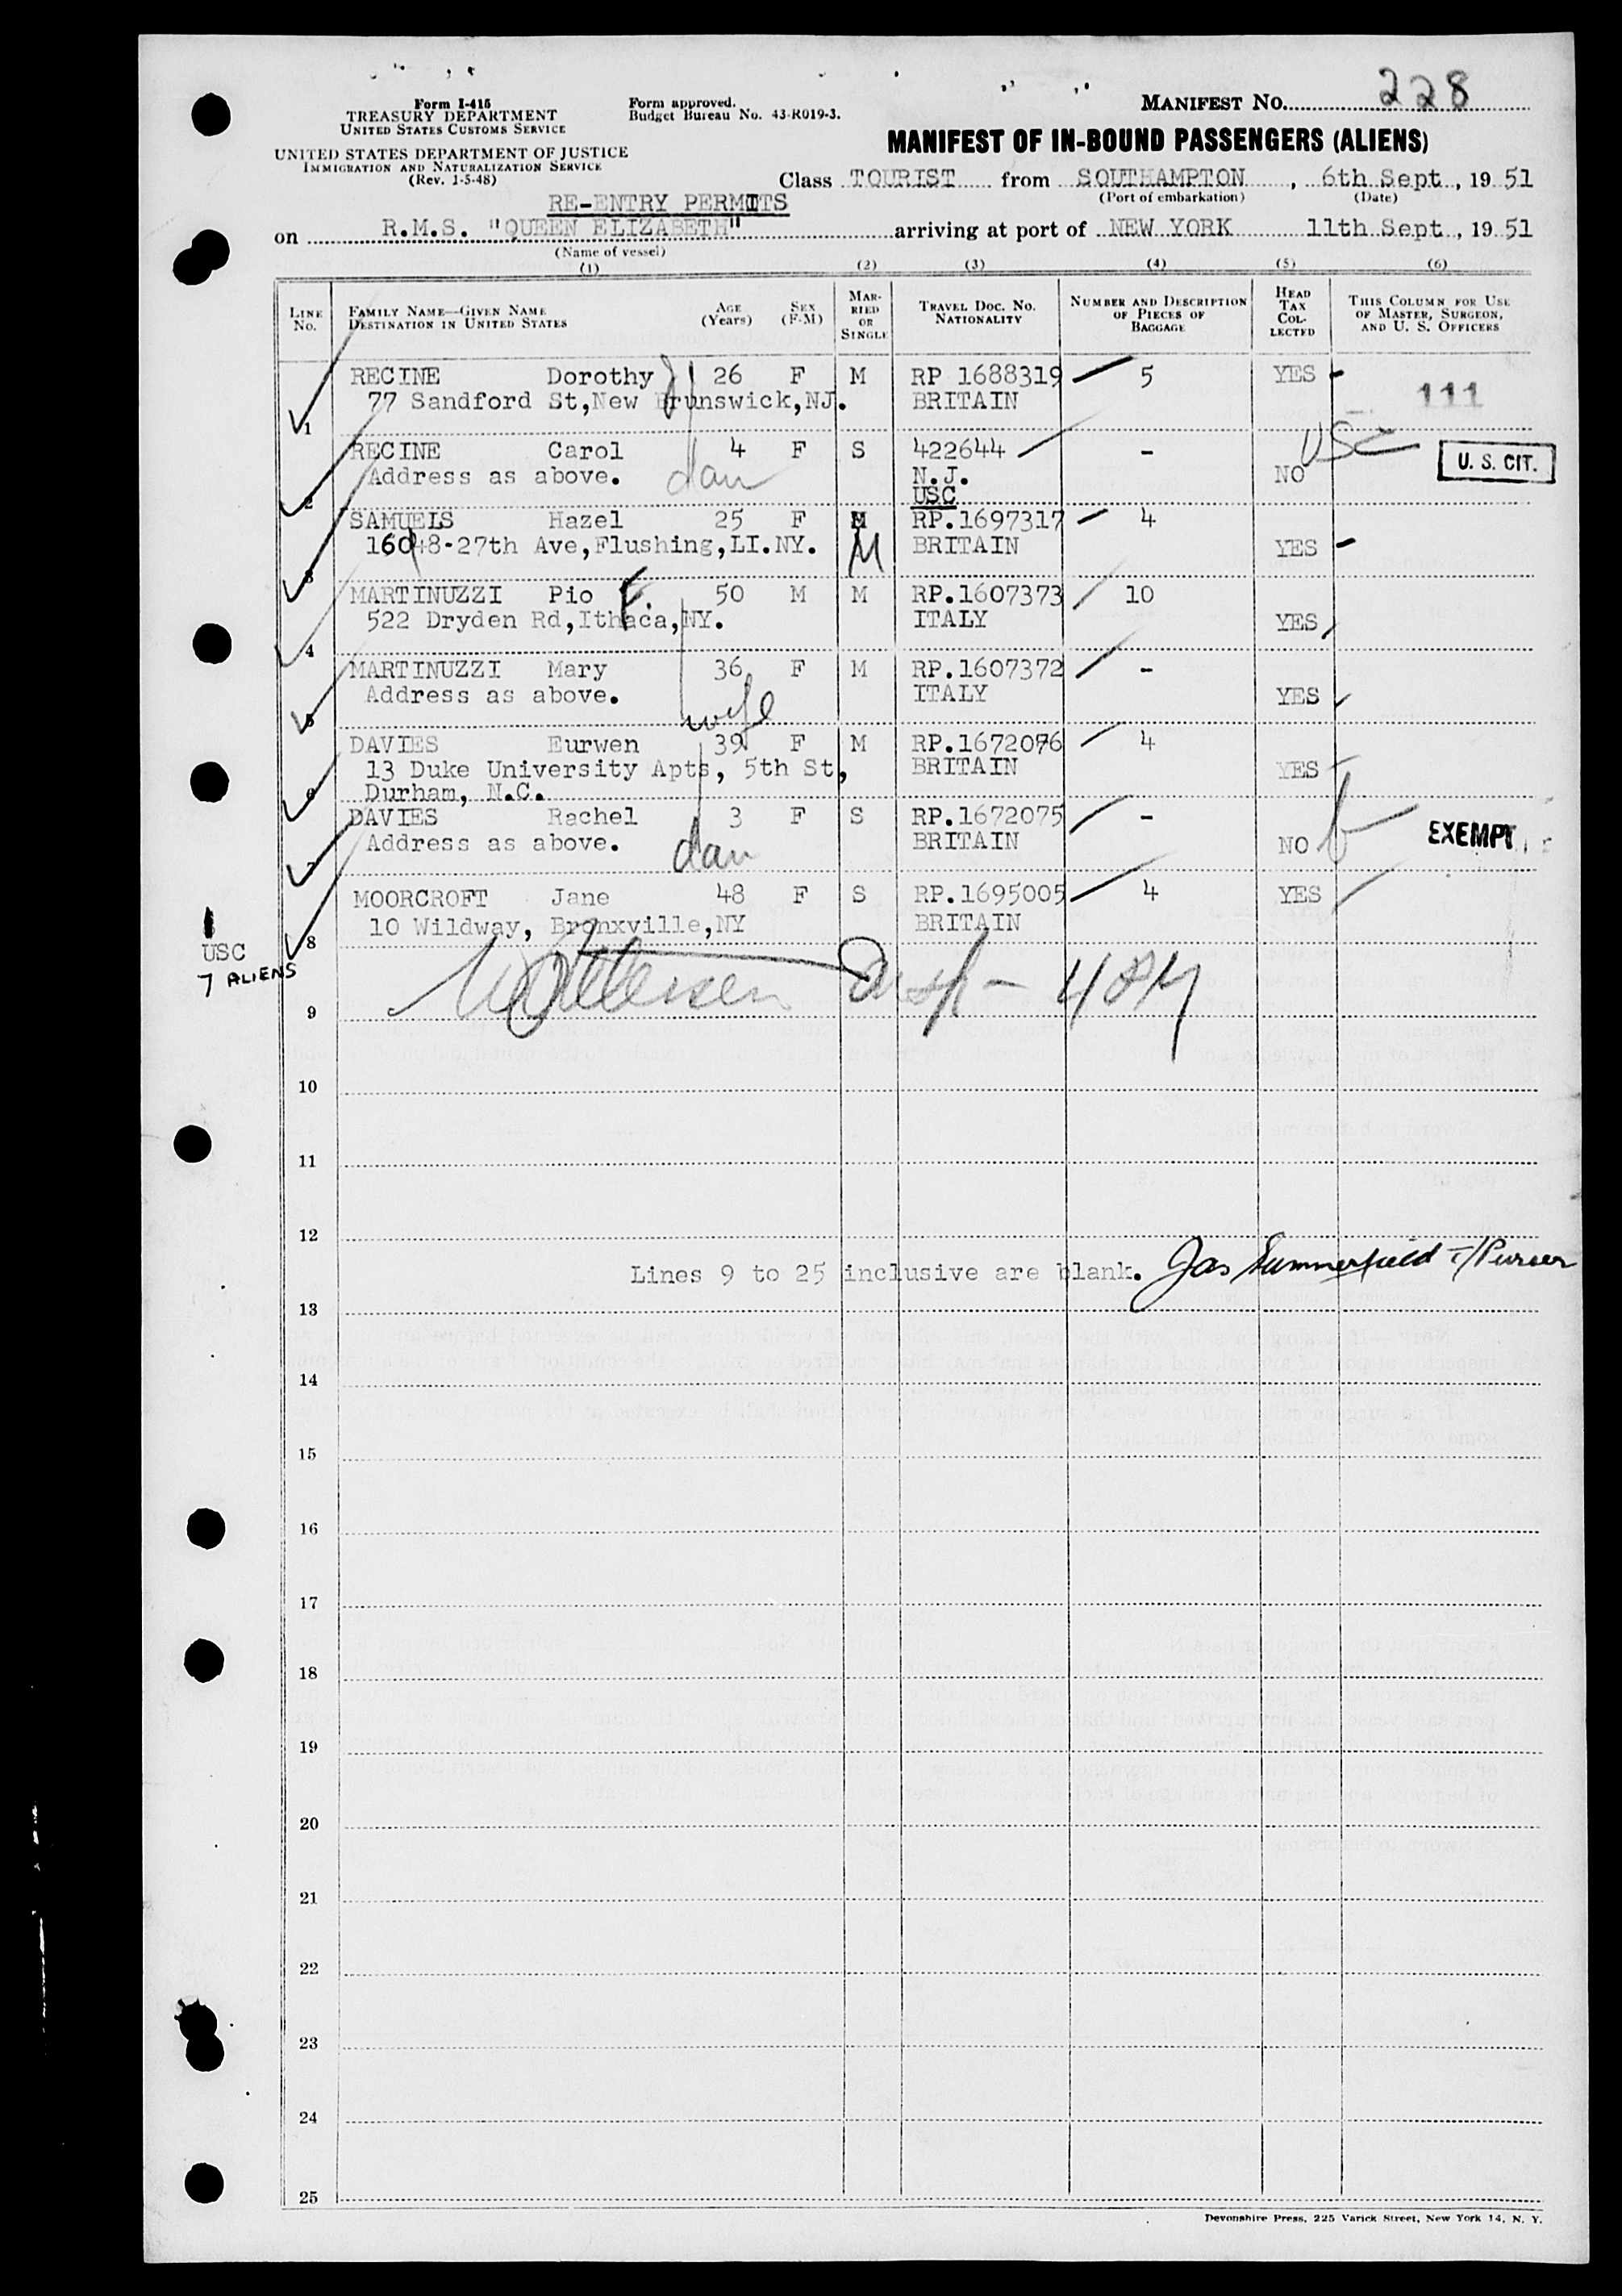 Form I-415
TREASURY DEPARTMENT
UNITED STATES CUSTOMS SERVICE
UNITED STATES DEPARTMENT OF JUSTICE
IMMIGRATION AND NATURALIZATION SERVICE
(Rev. 1-5-48)
Form approved.
Budget Bureau No. 43-R019-3.
MANIFEST NO. 228
MANIFEST OF IN-BOUND PASSENGERS (ALIENS)
Class TOURIST from SOUTHAMPTON, 6th Sept, 19 51
(Port of embarkation) (Date)
RE-ENTRY PERMITS
on R.M.S. "QUEEN ELIZABETH" arriving at port of NEW YORK 11th Sept, 19 51
(Name of vessel)
(1) (2) (3) (4) (5) (6)
LINE No. FAMILY NAME—GIVEN NAME DESTINATION IN UNITED STATES AGE (Years) SEX (F-M) MARRIED OR SINGLE TRAVEL DOC. NO. NATIONALITY NUMBER AND DESCRIPTION OF PIECES OF BAGGAGE HEAD TAX COLLECTED THIS COLUMN FOR USE OF MASTER, SURGEON, AND U. S. OFFICERS
RECINE Dorothy 26 F M RP 1688319 5 YES 111
77 Sandford St,New Brunswick,NJ. BRITAIN
1
RECINE Carol 4 F S 422644 - USC U. S. CIT.
Address as above. dau N.J. NO
2 USC
SAMUELS Hazel 25 F M RP.1697317 4
16048-27th Ave,Flushing,LI.NY. M BRITAIN YES
3
MARTINUZZI Pio F. 50 M M RP.1607373 10
522 Dryden Rd,Ithaca,NY. ITALY YES
4
MARTINUZZI Mary 36 F M RP.1607372 -
Address as above. ITALY YES
5 wife
DAVIES Eurwen 39 F M RP.1672076 4
13 Duke University Apts, 5th St, BRITAIN YES
6 Durham, N.C.
DAVIES Rachel 3 F S RP.1672075 -
Address as above. dau BRITAIN NO EXEMPT
7
MOORCROFT Jane 48 F S RP.1695005 4 YES
10 Wildway, Bronxville,NY BRITAIN
8
1
USC
7 ALIENS
9
10
11
12
Lines 9 to 25 inclusive are blank. Jas Summerfield T/Purser
13
14
15
16
17
18
19
20
21
22
23
24
25
Devonshire Press, 225 Varick Street, New York 14, N. Y.